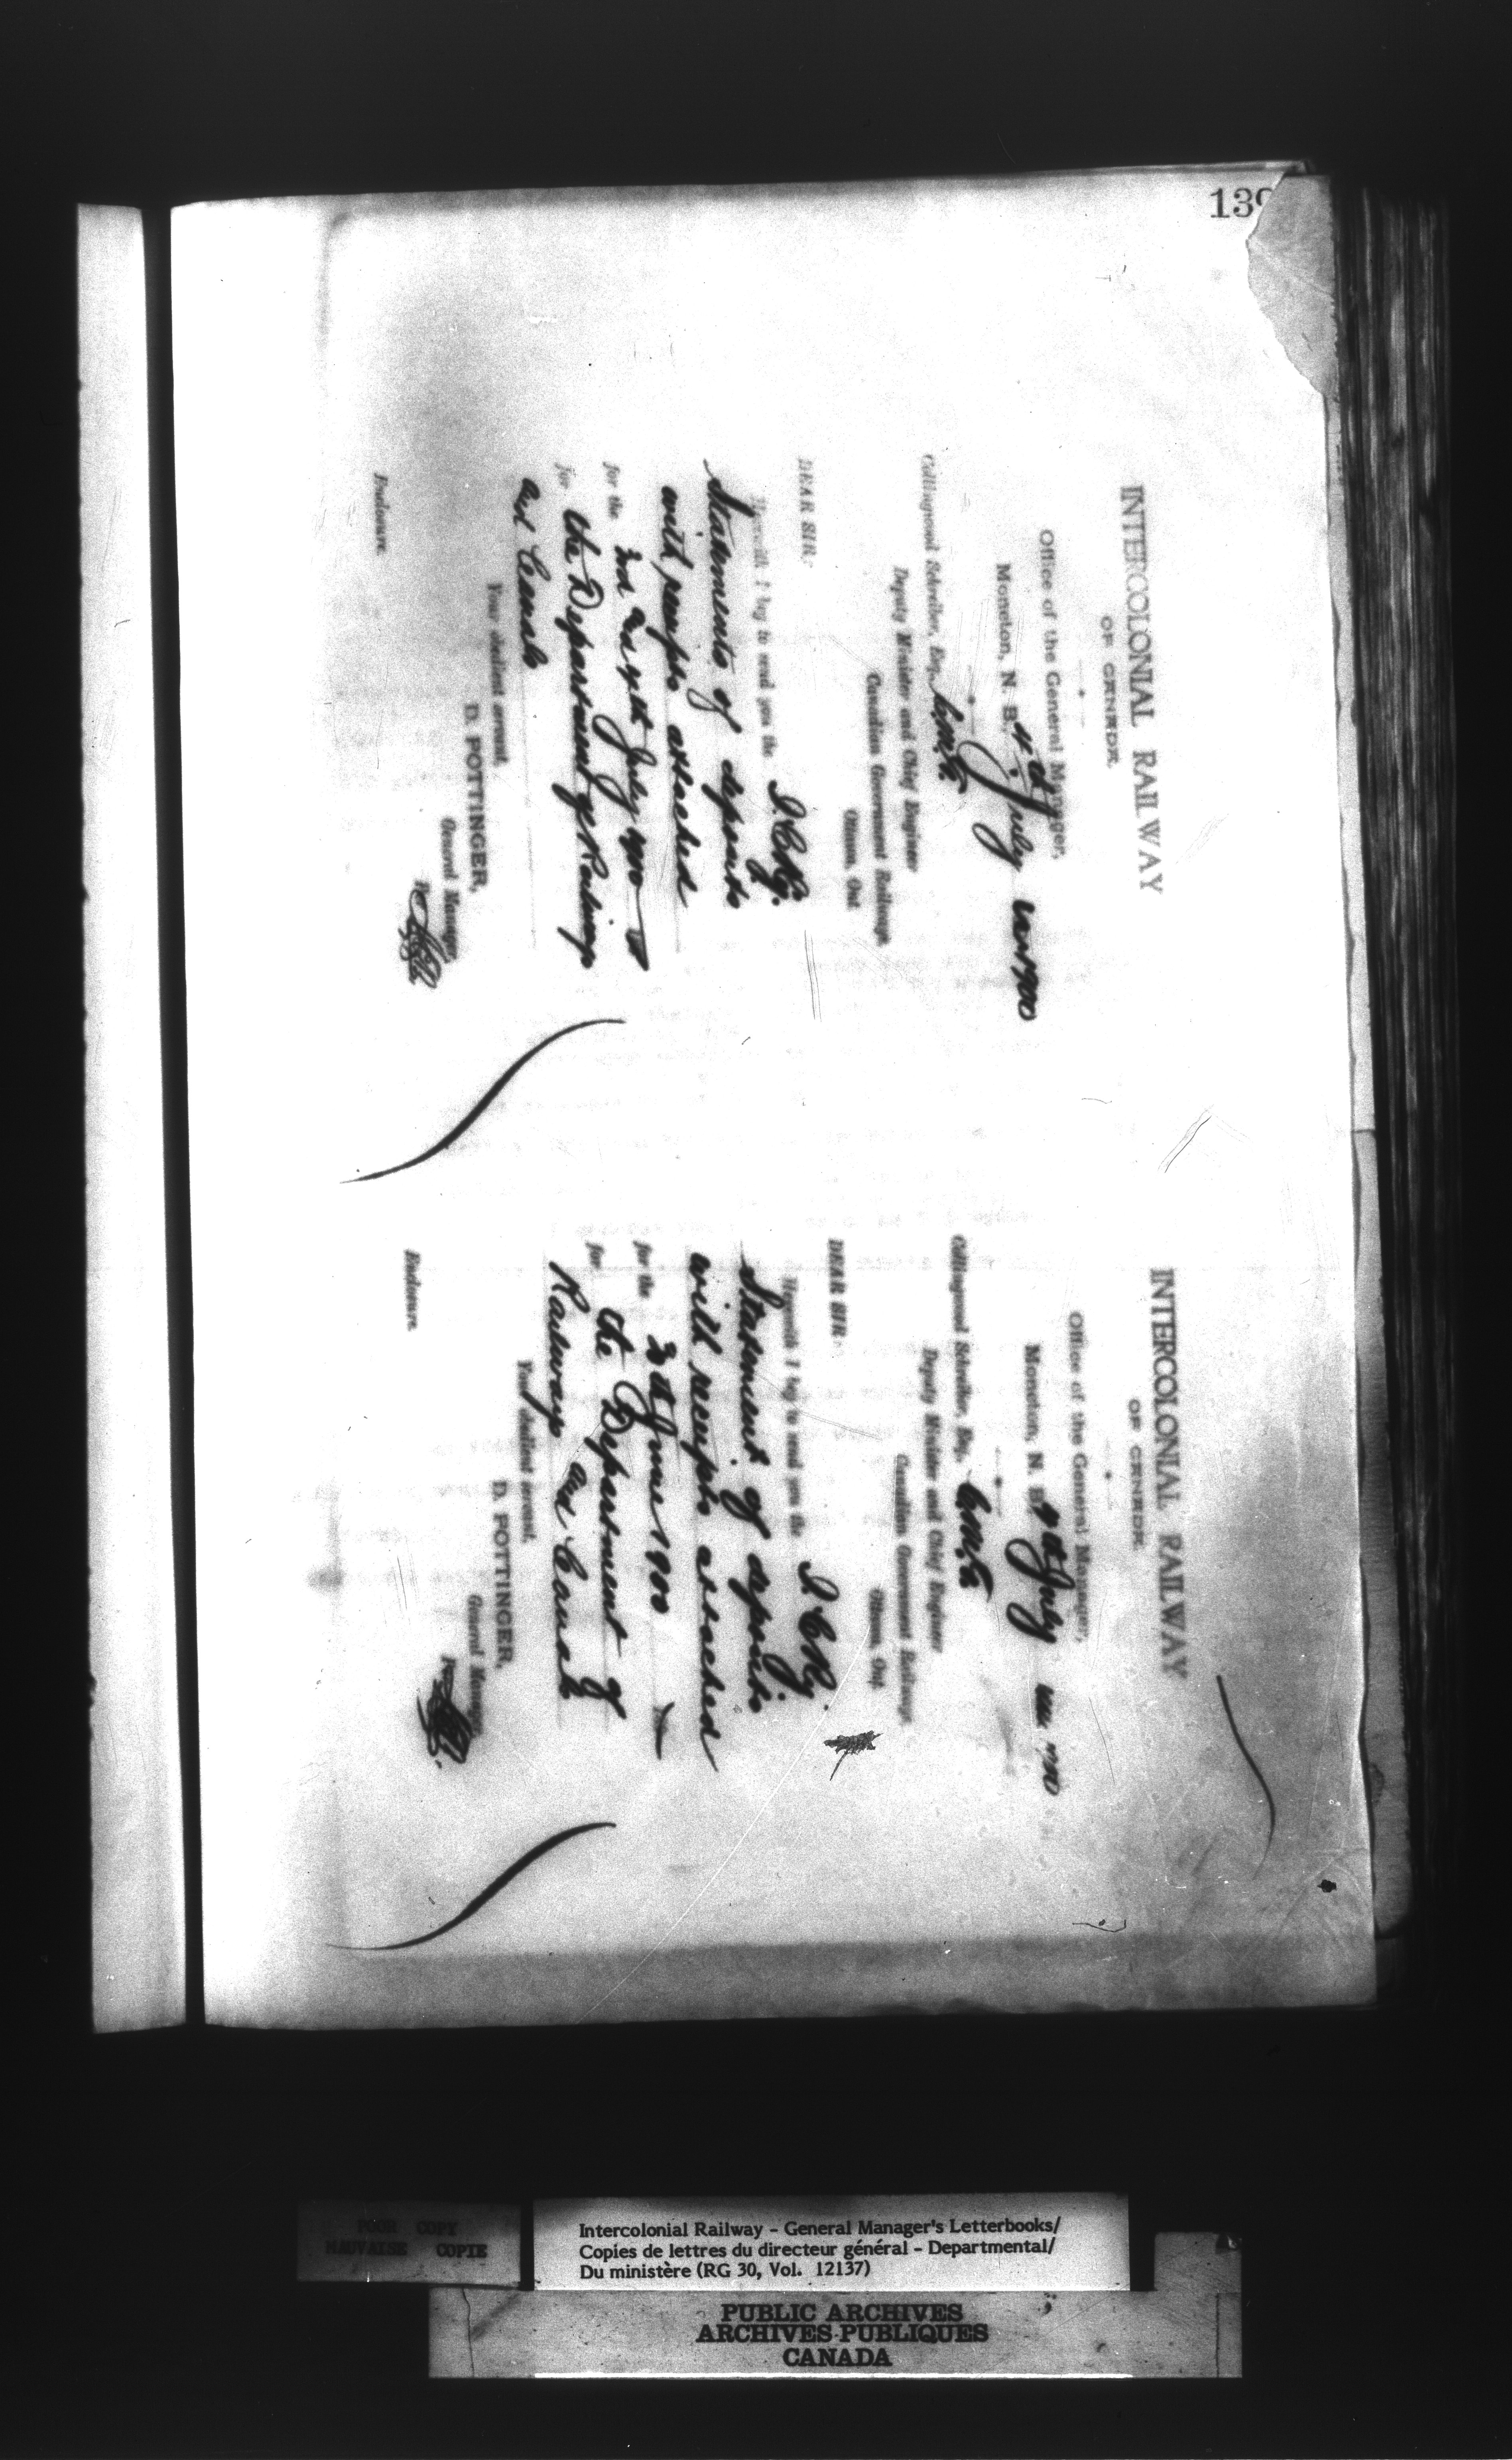 139
INTERCOLONIAL RAILWAY
OF CANADA.
Office of the General Manager,
Moncton, N. B. 4th July 1900
Collingwood Schreiber, Esq., C.M.G.
Deputy Minister and Chief Engineer
Canadian Government Railways,
Ottawa, Ont.
DEAR SIR,
Herewith I beg to send you the I.C.Ry.
Statements of deposits
with receipts attached
for the 2nd 3rd 4th July 1900
for the Department of Railways
and Canals
Your obedient servant,
D. POTTINGER,
General Manager,
Per
Enclosure.
INTERCOLONIAL RAILWAY
OF CANADA.
Office of the General Manager,
Moncton, N. B. July 1900
Collingwood Schreiber, Esq., C.M.G.
Deputy Minister and Chief Engineer
Canadian Government Railways,
Ottawa, Ont.
DEAR SIR:
Herewith I beg to send you the I.C.Ry.
Statement of deposits
with receipts attached
for the 30th June 1900
for the Department of
Railways and Canals
Your obedient servant,
D. POTTINGER,
General Manager,
Per
Enclosure.
POOR COPY
MAUVAISE COPIE
Intercolonial Railway – General Manager's Letterbooks/
Copies de lettres du directeur général – Departmental/
Du ministère (RG 30, Vol. 12137)
PUBLIC ARCHIVES
ARCHIVES PUBLIQUES
CANADA